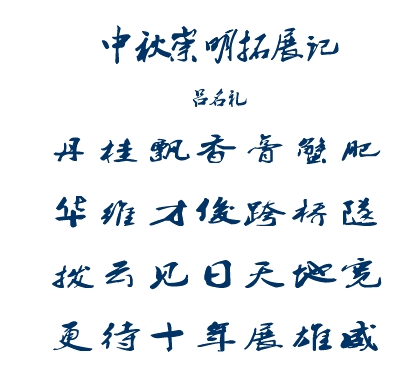 中秋崇明拓展记
吕名礼
丹桂飘香膏蟹肥
华维才俊跨桥隧
拨云见日天地宽
更待十年展雄威